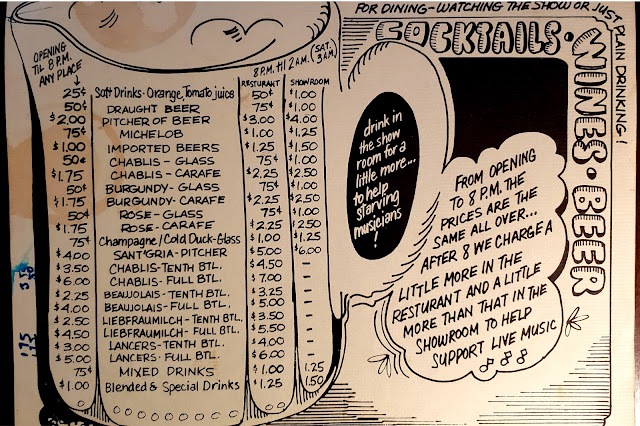 FOR DINING-WATCHING THE SHOW OR JUST PLAIN DRINKING!
COCKTAILS · WINES · BEER
OPENING
TIL 8 P.M.
ANY PLACE
8 P.M. til 2 A.M. (SAT. 3 A.M.)
RESTURANT SHOWROOM
25¢ Soft Drinks-Orange, Tomato juice 50¢ $1.00
50¢ DRAUGHT BEER 75¢ $1.00
$2.00 PITCHER OF BEER $3.00 $4.00
75¢ MICHELOB $1.00 $1.25
$1.00 IMPORTED BEERS $1.25 $1.50
50¢ CHABLIS - GLASS 75¢ $1.00
$1.75 CHABLIS - CARAFE $2.25 $2.50
50¢ BURGUNDY - GLASS 75¢ $1.00
$1.75 BURGUNDY - CARAFE $2.25 $2.50
50¢ ROSE - GLASS 75¢ $1.00
$1.75 ROSE - CARAFE $2.25 $2.50
75¢ Champagne/Cold Duck-Glass $1.00 $1.25
$4.00 SANT'GRIA - PITCHER $5.00 $6.00
$3.50 CHABLIS - TENTH BTL. $4.50 –
$6.00 CHABLIS - FULL BTL. $7.00 –
$2.25 BEAUJOLAIS - TENTH BTL. $3.25 –
$4.00 BEAUJOLAIS - FULL BTL. $5.00 –
$2.50 LIEBFRAUMILCH - TENTH BTL. $3.50 –
$4.50 LIEBFRAUMILCH - FULL BTL. $5.50 –
$3.00 LANCERS - TENTH BTL. $4.00 –
$5.00 LANCERS - FULL BTL. $6.00 –
75¢ MIXED DRINKS $1.00 1.25
$1.00 Blended & Special Drinks $1.25 1.50
drink in
the show
room for a
little more...
to help
starving
musicians
!
FROM OPENING
TO 8 P.M. THE
PRICES ARE THE
SAME ALL OVER...
AFTER 8 WE CHARGE A
LITTLE MORE IN THE
RESTURANT AND A LITTLE
MORE THAN THAT IN THE
SHOWROOM TO HELP
SUPPORT LIVE MUSIC